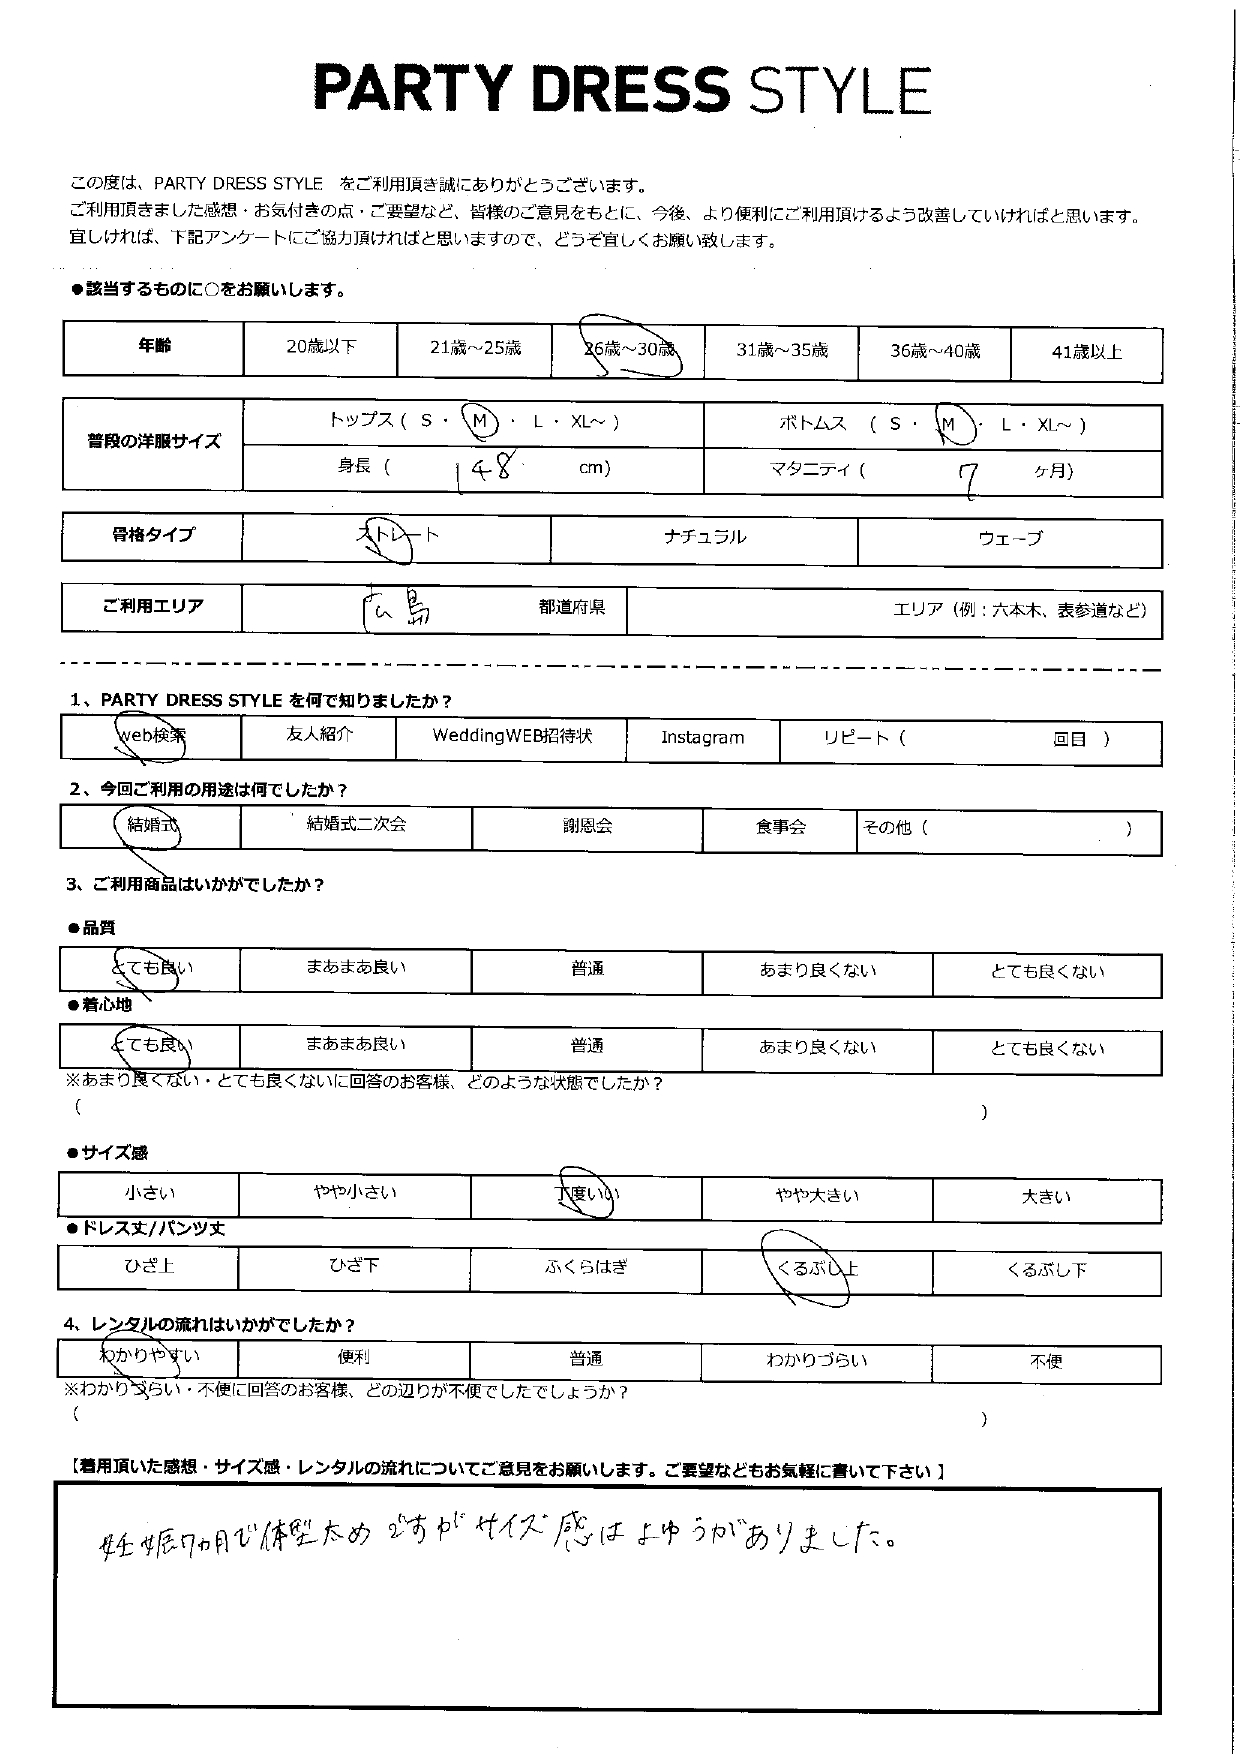 PARTY DRESS STYLE
この度は、PARTY DRESS STYLE をご利用頂き誠にありがとうございます。
ご利用頂きました感想・お気付きの点・ご要望など、皆様のご意見をもとに、今後、より便利にご利用頂けるよう改善していければと思います。
宜しければ、下記アンケートにご協力頂ければと思いますので、どうぞ宜しくお願い致します。
●該当するものに○をお願いします。
年齢 20歳以下 21歳～25歳 26歳～30歳 31歳～35歳 36歳～40歳 41歳以上
普段の洋服サイズ トップス ( S ・ M ・ L ・ XL～ ) ボトムス ( S ・ M ・ L ・ XL～ )
身長 ( 148 cm) マタニティ ( 7 ヶ月)
骨格タイプ ストレート ナチュラル ウェーブ
ご利用エリア 広島 都道府県 エリア（例：六本木、表参道など）
1、PARTY DRESS STYLE を何で知りましたか？
web検索 友人紹介 WeddingWEB招待状 Instagram リピート ( 回目 )
2、今回ご利用の用途は何でしたか？
結婚式 結婚式二次会 謝恩会 食事会 その他 ( )
3、ご利用商品はいかがでしたか？
●品質
とても良い まあまあ良い 普通 あまり良くない とても良くない
●着心地
とても良い まあまあ良い 普通 あまり良くない とても良くない
※あまり良くない・とても良くないに回答のお客様、どのような状態でしたか？
( )
●サイズ感
小さい やや小さい 丁度いい やや大きい 大きい
●ドレス丈/パンツ丈
ひざ上 ひざ下 ふくらはぎ くるぶし上 くるぶし下
4、レンタルの流れはいかがでしたか？
わかりやすい 便利 普通 わかりづらい 不便
※わかりづらい・不便に回答のお客様、どの辺りが不便でしたでしょうか？
( )
【着用頂いた感想・サイズ感・レンタルの流れについてご意見をお願いします。ご要望などもお気軽に書いて下さい】
妊娠7ヵ月で体型太めですがサイズ感はよゆうがありました。